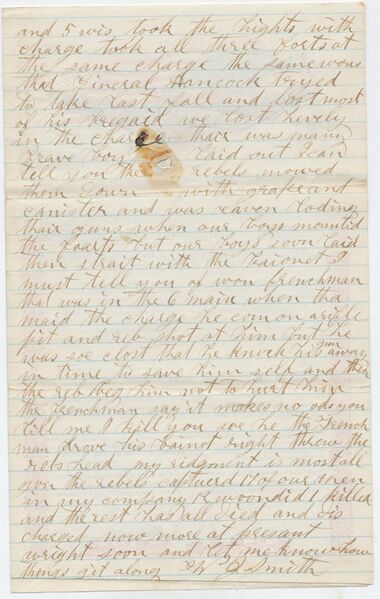 and 5 wis took the hights with
charge took all three forts at
the same charge the same wons
that General Hancock tryed
to take last fall and lost most
of his Bregaid we lost hevely
in the charge thair was many
brave boys laid out I can
tell you the rebels mowed
them down with grape and
canister and was eaven loding
thair guns when our boys mountid
the fourts but our boys soon laid
them strait with the baionet I
must tell you of won frenchman
that was in the 6 main when tha
maid the charge he com on a rifle
pit and reb shot at him but he
was soe clost that he knock his gun away
in time to save him self and then
the reb beg him not to hurt him
the frenchman say it makes no ods you
kill me I kill you soe he the french
man drove his bainot right threw the
rebs head my ridgment is most all
gon the rebels captured 17 of our men
in my company 12 woondid 1 killed
and the rest has all died and dis
charged, now more at presant
wright soon and let me know how
things git along W J Smith